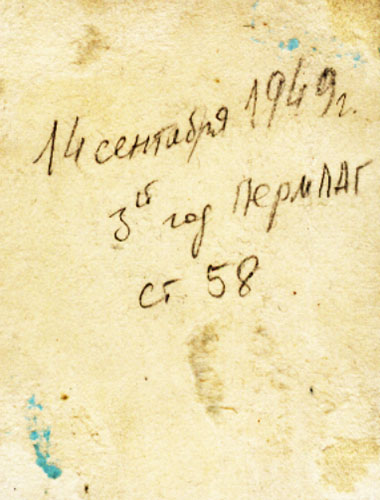 14 сентября 1949 г.
3ий год ПермЛАГ
ст 58